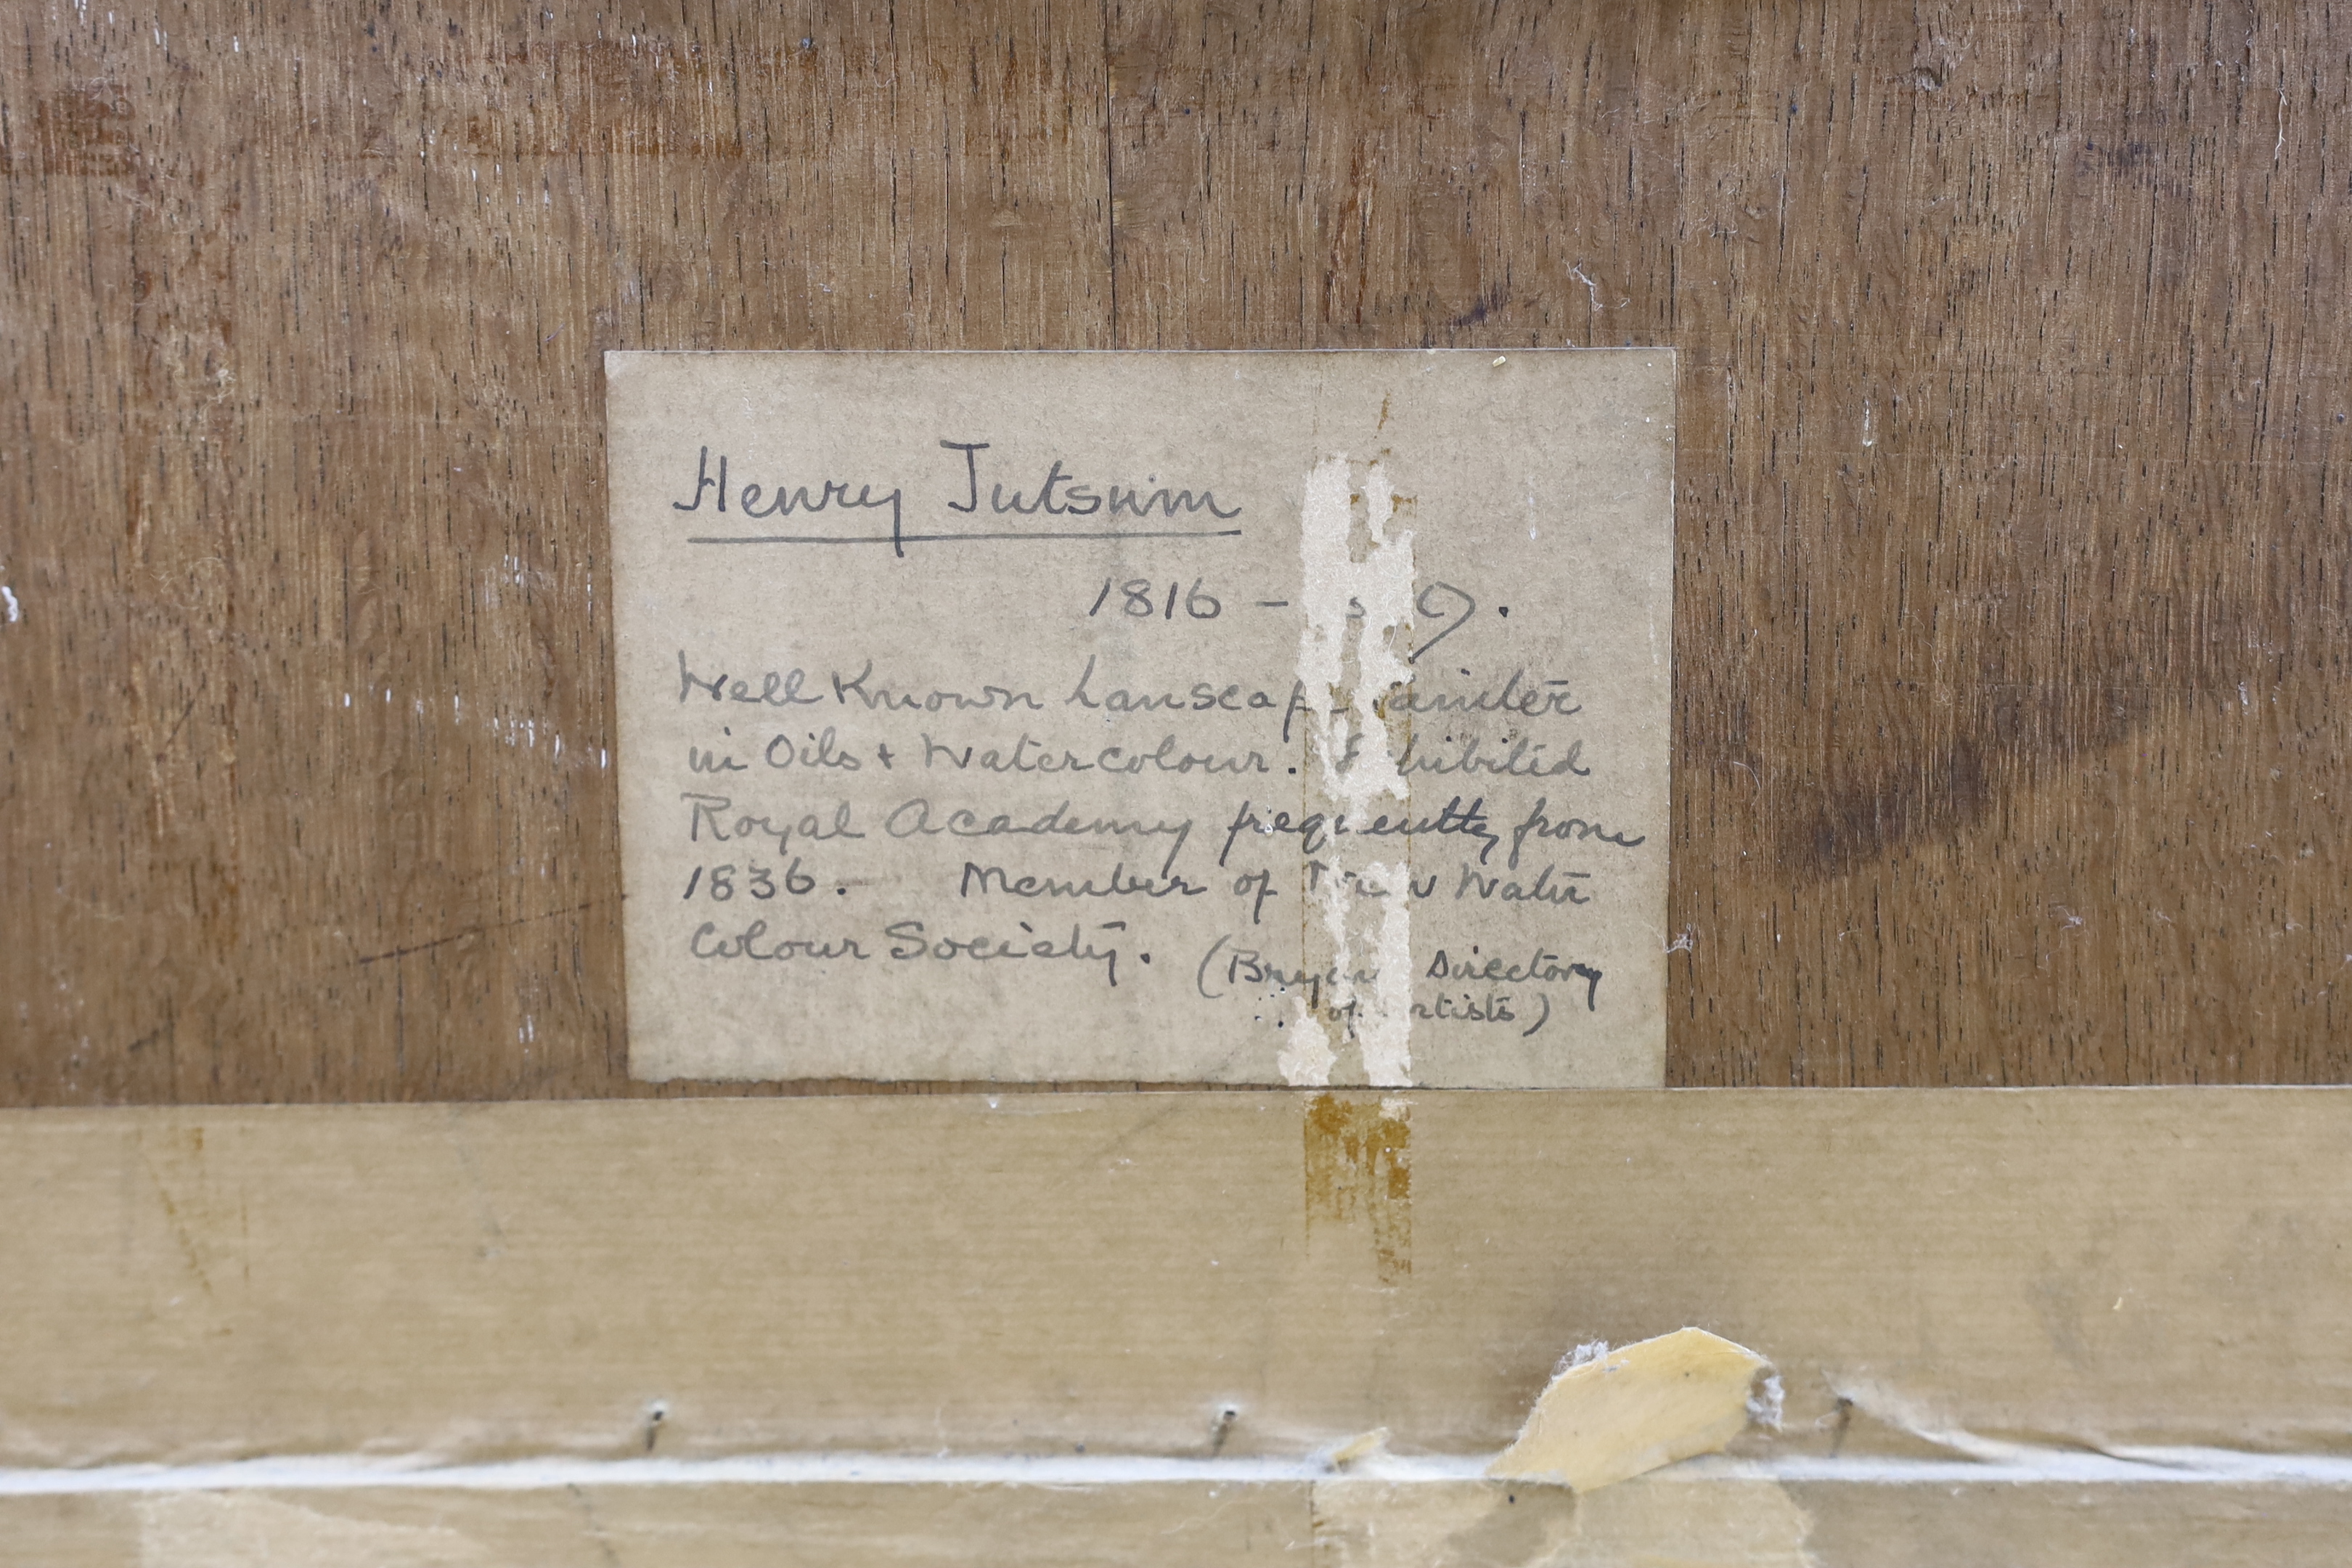 Henry Jutsum
1816 -
Well Known Lanscap Painter
in Oils + Watercolour. Exhibited
Royal Academy frequently from
1836. Member of New Water
Colour Society.
(Bryan Directory
of Artists)